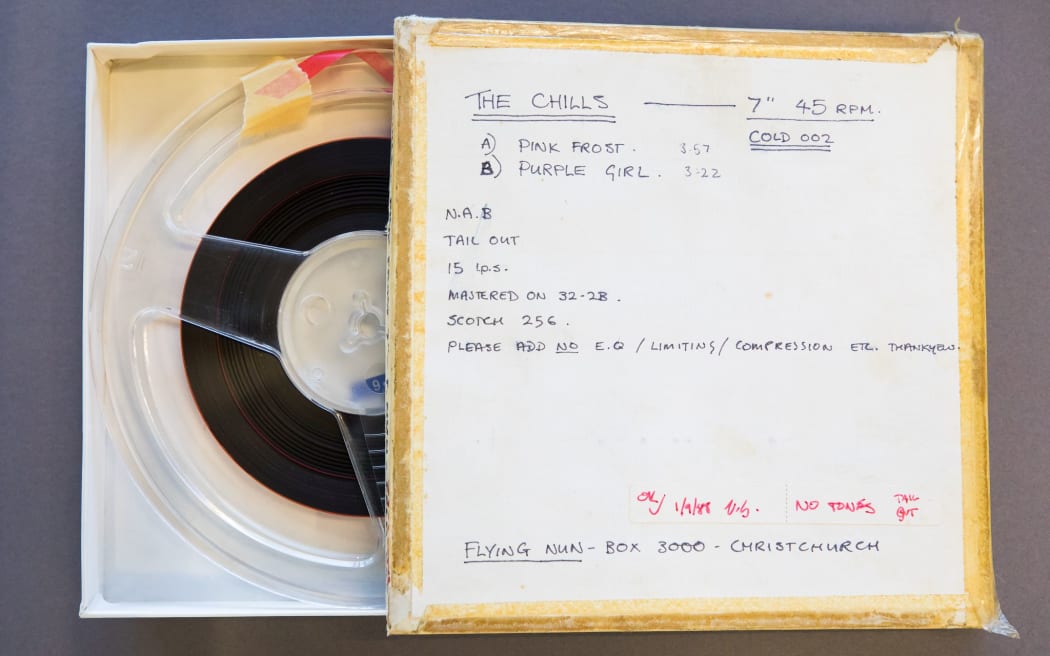 THE CHILLS — 7" 45 RPM.
COLD 002
A) PINK FROST. 3.57
B) PURPLE GIRL. 3.22
N.A.B
TAIL OUT
15 i.p.s.
MASTERED ON 32-2B.
SCOTCH 256.
PLEASE ADD NO E.Q / LIMITING / COMPRESSION ETC. THANKYEW.
OK/ 1/9/88 NO TONES TAIL OUT
FLYING NUN - BOX 3000 - CHRISTCHURCH